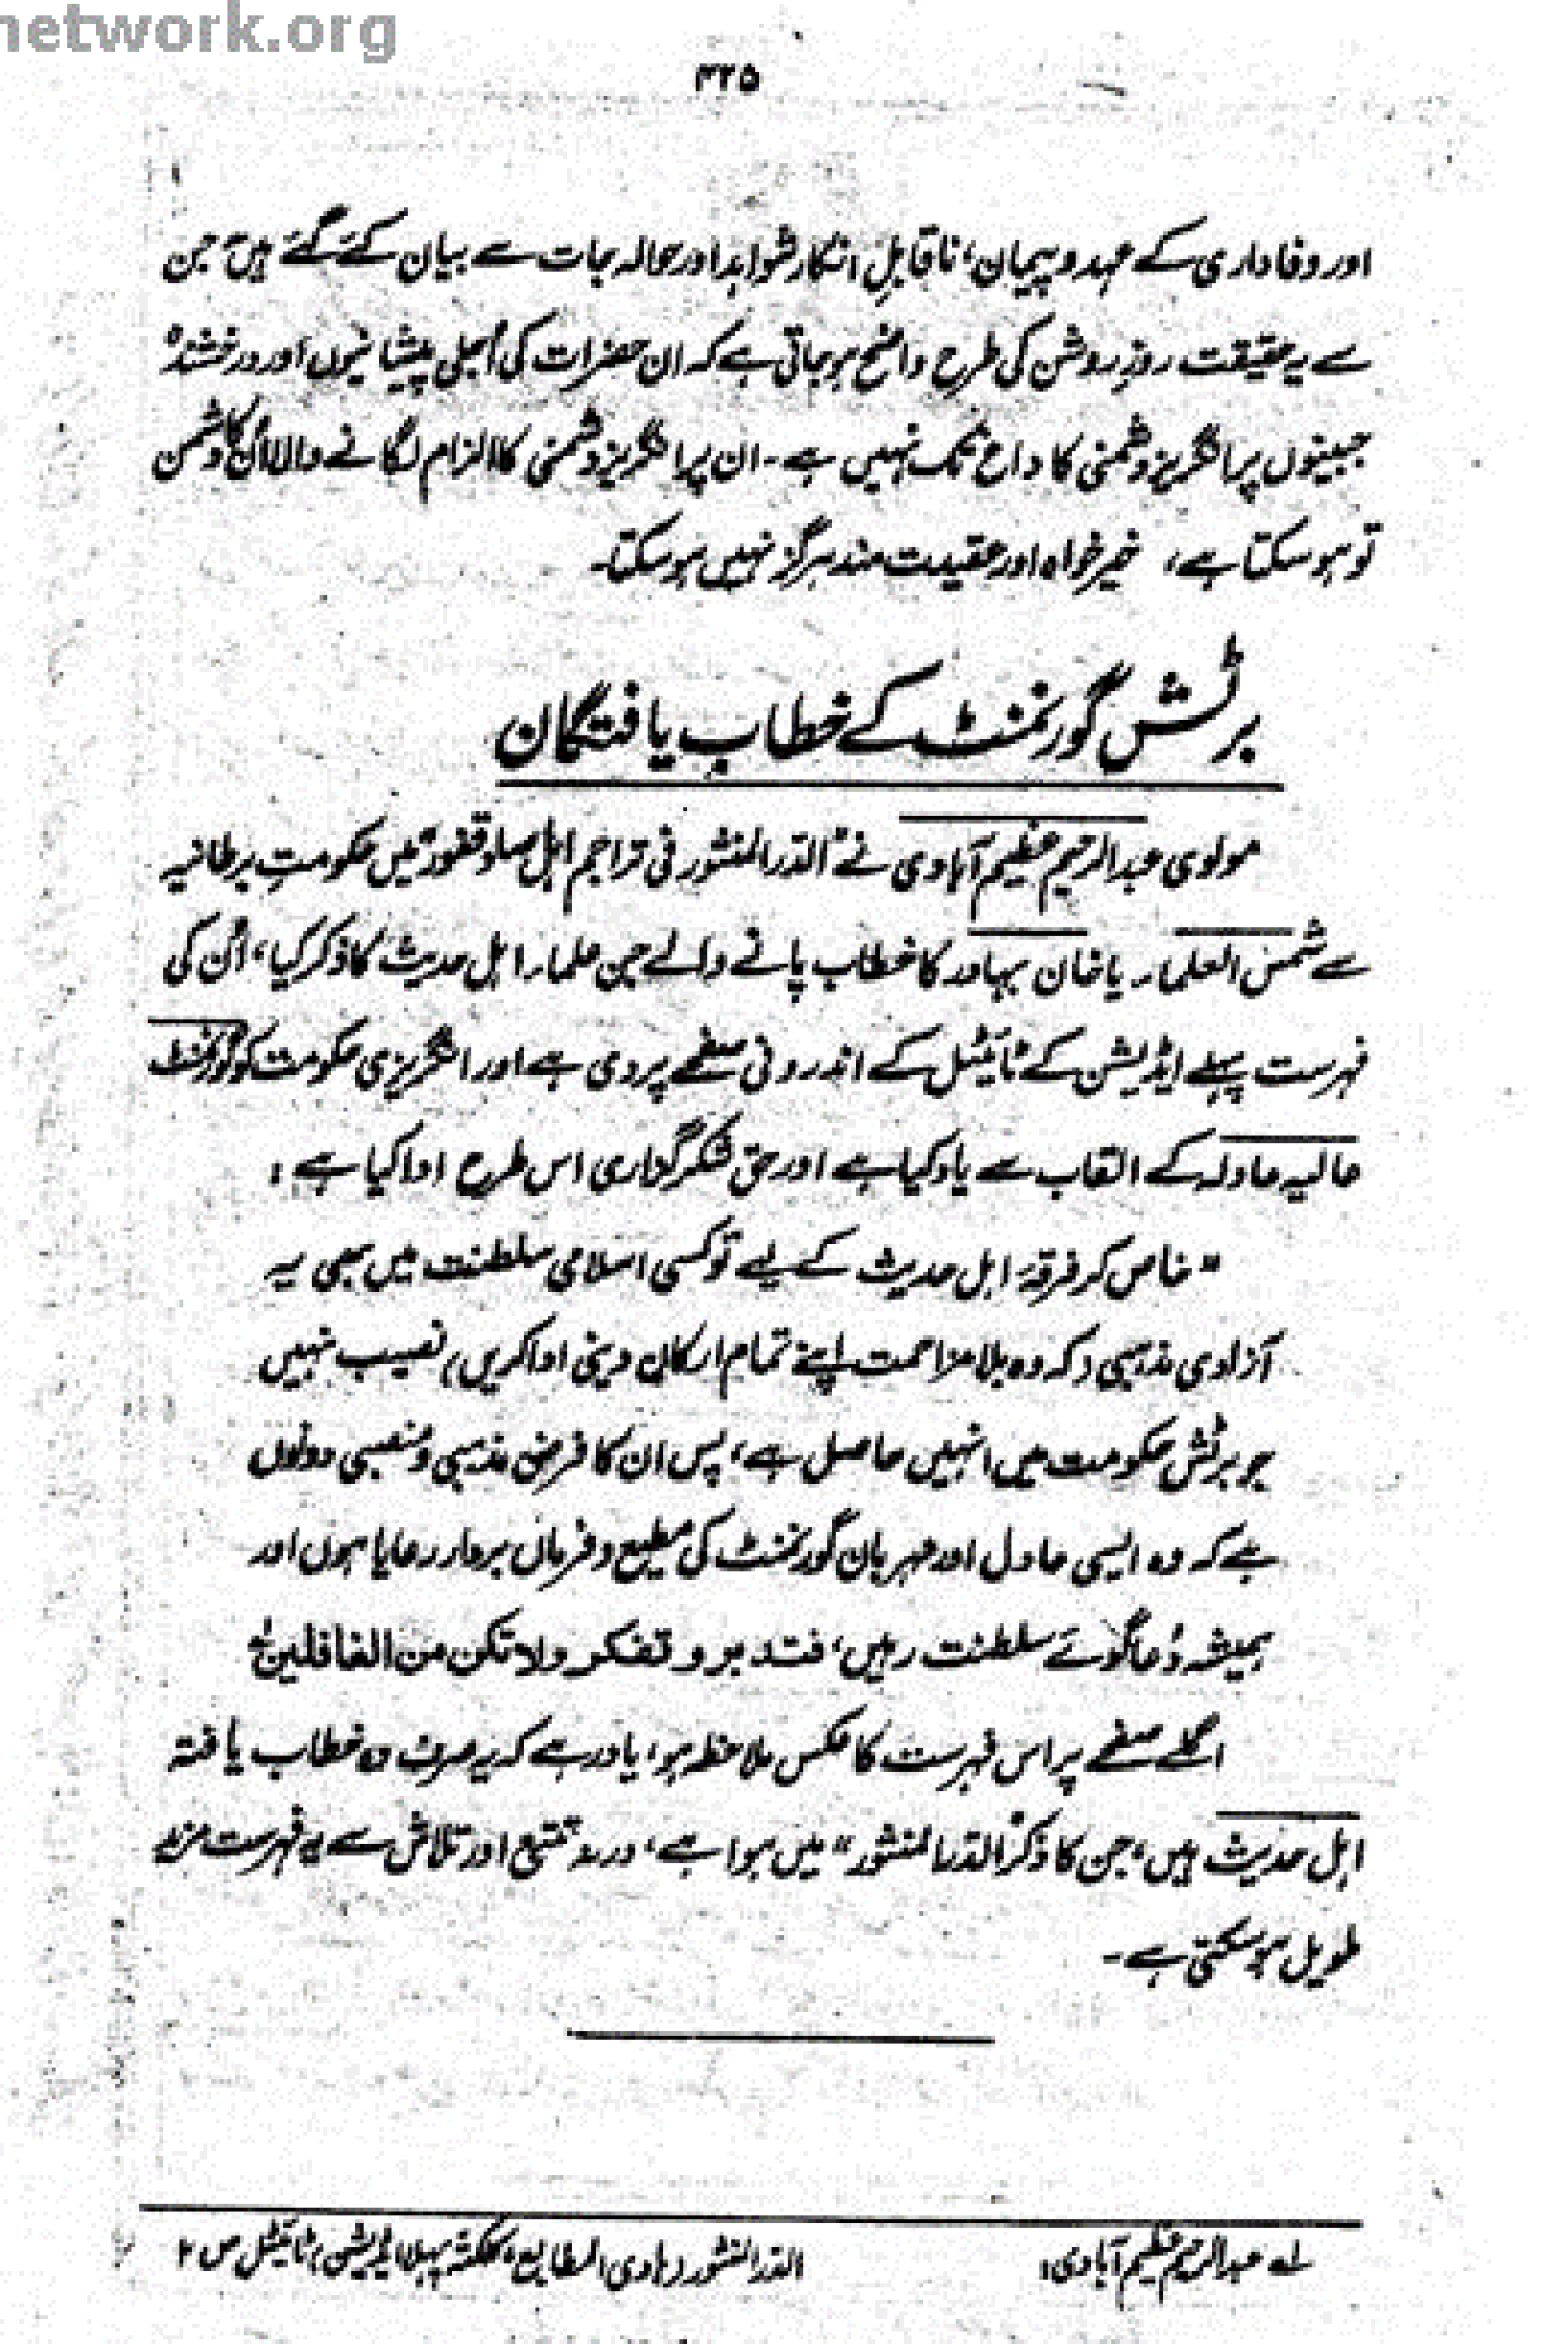 network.org
۳۲۵
اور وفاداری کے عہد و پیمان، ناقابلِ انکار شواہد اور حوالہ جات سے بیان کئے گئے ہیں، جن
سے یہ حقیقت روزِ روشن کی طرح واضح ہو جاتی ہے کہ ان حضرات کی اُجلی پیشانیوں اور درخشندہ
جبینوں پر انگریز دشمنی کا داغ تک نہیں ہے۔ ان پر انگریز دشمنی کا الزام لگانے والا اُن کا دشمن
تو ہو سکتا ہے، خیر خواہ اور عقیدت مند ہرگز نہیں ہو سکتا۔
برٹش گورنمنٹ کے خطاب یافتگان
مولوی عبدالرحیم عظیم آبادی نے "الدر المنثور فی تراجم اہل صادقفور" میں حکومتِ برطانیہ
سے شمس العلماء یا خان بہادر کا خطاب پانے والے جن علماء اہل حدیث کا ذکر کیا، اُن کی
فہرست پہلے ایڈیشن کے ٹائیٹل کے اندرونی صفحے پر دی ہے اور انگریزی حکومت کو گورنمنٹ
عالیہ عادلہ کے القاب سے یاد کیا ہے اور حق شکر گذاری اس طرح ادا کیا ہے:
"خاص کر فرقۂ اہل حدیث کے لیے تو کسی اسلامی سلطنت میں بھی یہ
آزادی مذہبی (کہ وہ بلا مزاحمت اپنے تمام ارکان دینی ادا کریں) نصیب نہیں
جو برٹش حکومت میں انہیں حاصل ہے، پس ان کا فرض مذہبی و منصبی دونوں
ہے کہ وہ ایسی عادل اور مہربان گورنمنٹ کی مطیع و فرماں بردار رعایا ہوں اور
ہمیشہ دُعا گوئے سلطنت رہیں، فتدبر و تفکر ولا تکن من الغافلین" لے
اگلے صفحے پر اس فہرست کا عکس ملاحظہ ہو، یاد رہے کہ یہ صرف وہ خطاب یافتہ
اہل حدیث ہیں، جن کا ذکر "الدر المنثور" میں ہوا ہے، ورنہ تتبع اور تلاش سے یہ فہرست مزید
طویل ہو سکتی ہے۔
لے عبدالرحیم عظیم آبادی: الدر المنثور (ہادی المطابع، کلکتہ پہلا ایڈیشن) ٹائیٹل ص ۲